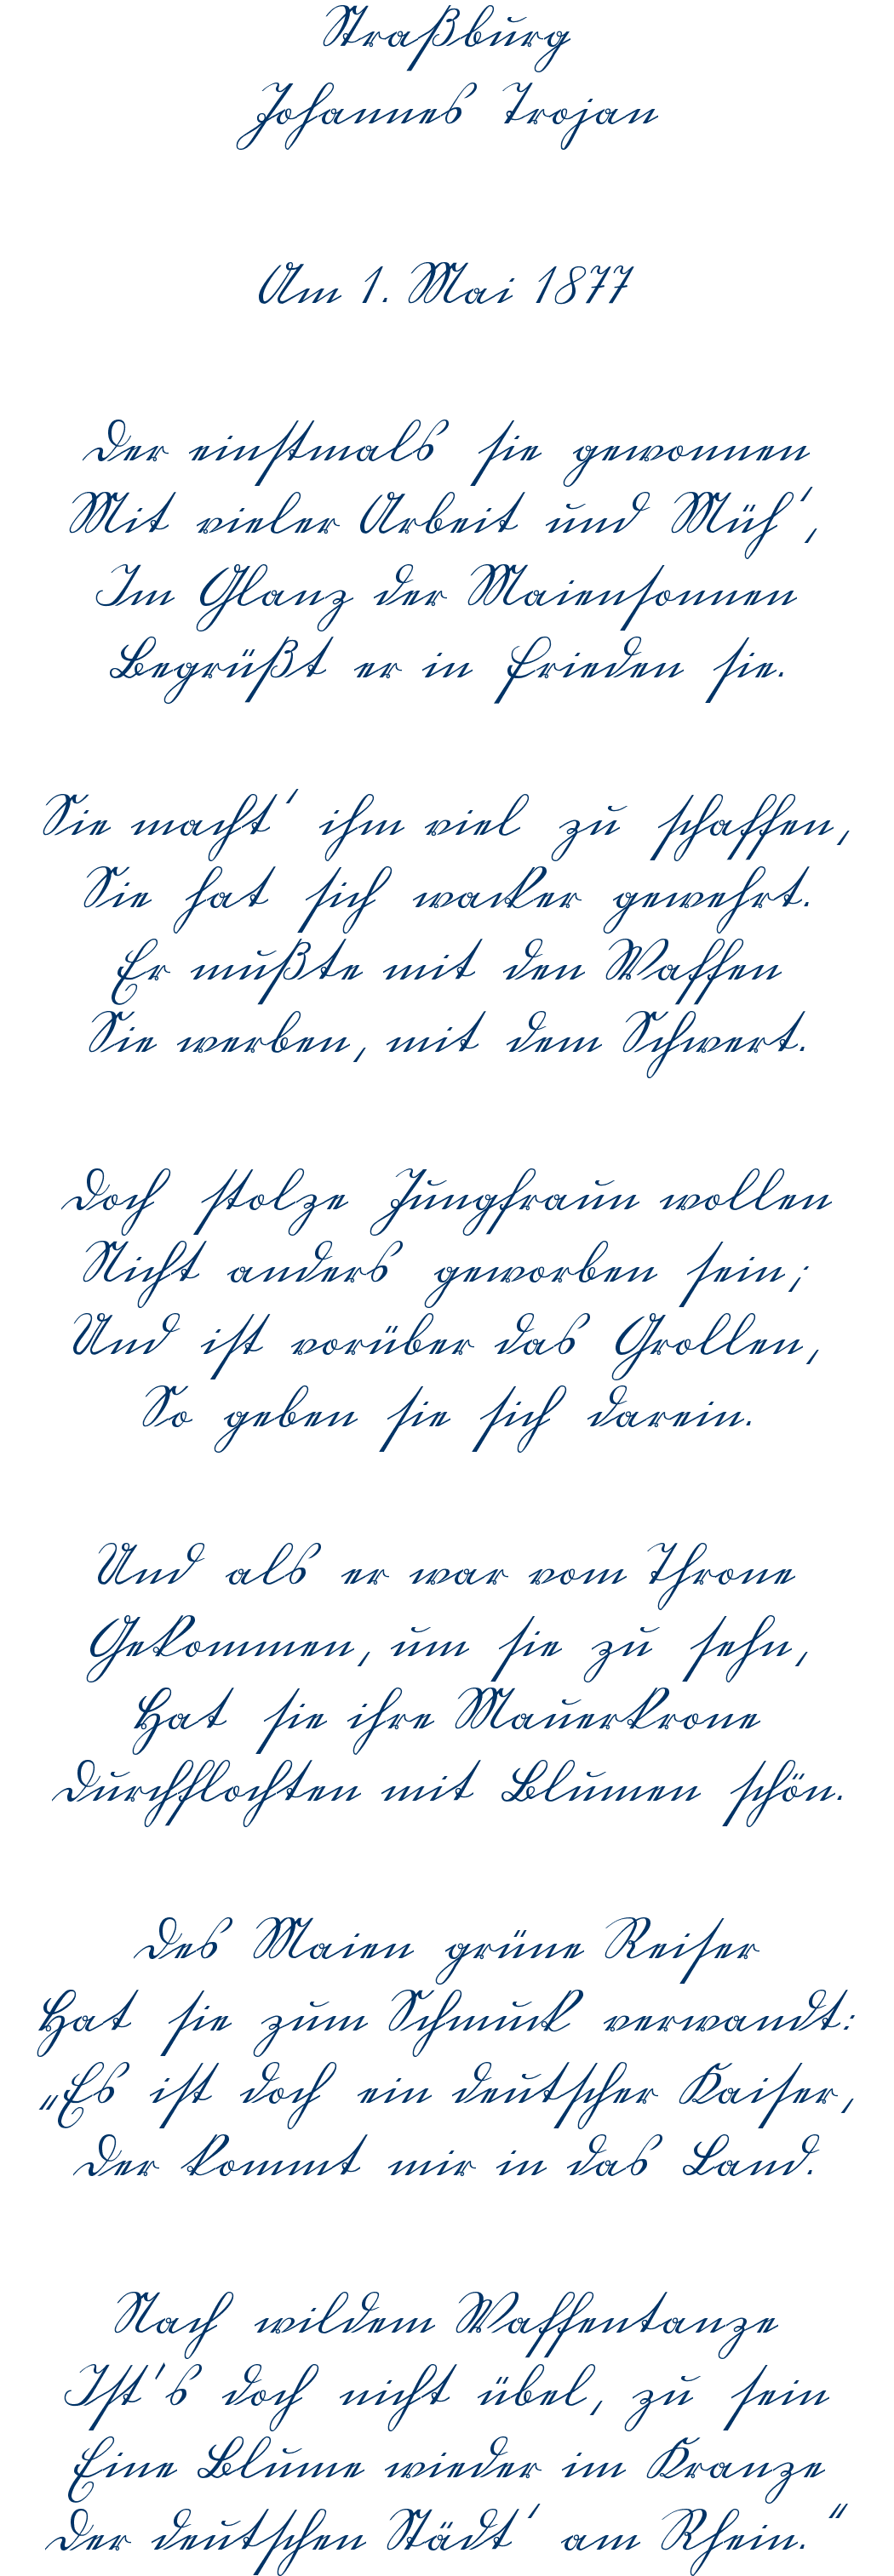 Straßburg
Johannes Trojan
Am 1. Mai 1877
Der einstmals sie gewonnen
Mit vieler Arbeit und Müh',
Im Glanz der Maiensonnen
Begrüßt er in Frieden sie.
Sie macht' ihm viel zu schaffen,
Sie hat sich wacker gewehrt.
Er mußte mit den Waffen
Sie werben, mit dem Schwert.
Doch stolze Jungfraun wollen
Nicht anders geworben sein;
Und ist vorüber das Grollen,
So geben sie sich darein.
Und als er war vom Throne
Gekommen, um sie zu sehn,
Hat sie ihre Mauerkrone
Durchflochten mit Blumen schön.
Des Maien grüne Reiser
Hat sie zum Schmuck verwandt:
„Es ist doch ein deutscher Kaiser,
Der kommt mir in das Land.
Nach wildem Waffentanze
Ist's doch nicht übel, zu sein
Eine Blume wieder im Kranze
Der deutschen Städt' am Rhein.“